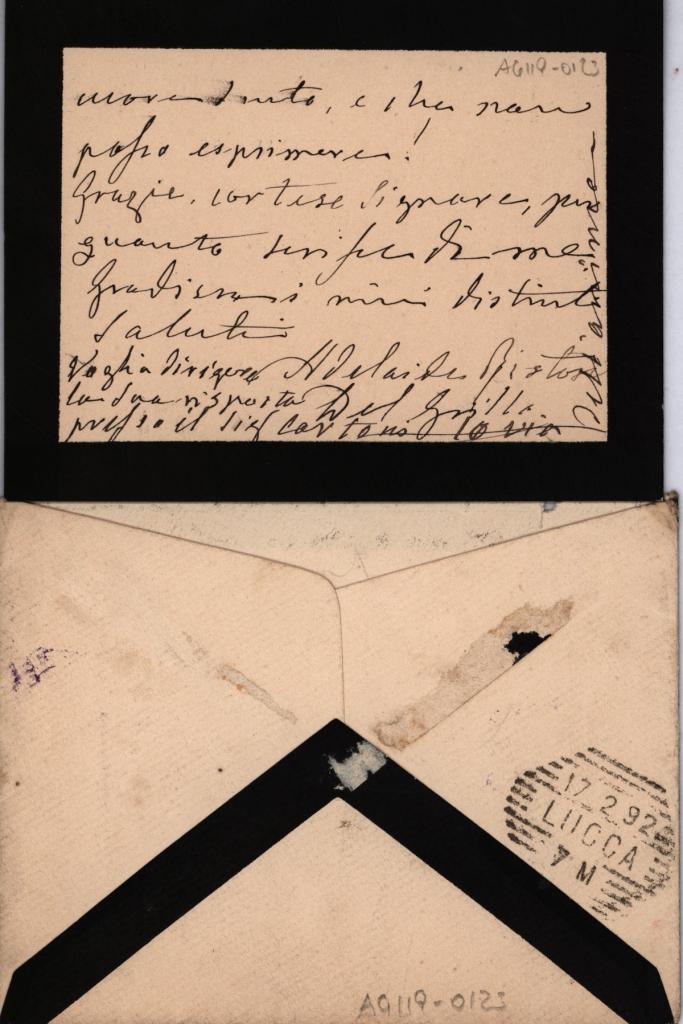 AG119-0123
, e che non
posso esprimere!
Grazie, cortese Signore, per
quanto di me
Gradisca i miei distinti
Saluti
Adelaide Ristori
Del Grillo
Voglia dirigere
la sua risposta
presso il Sig
17 2 92
LUCCA
7 M
AG119-0123